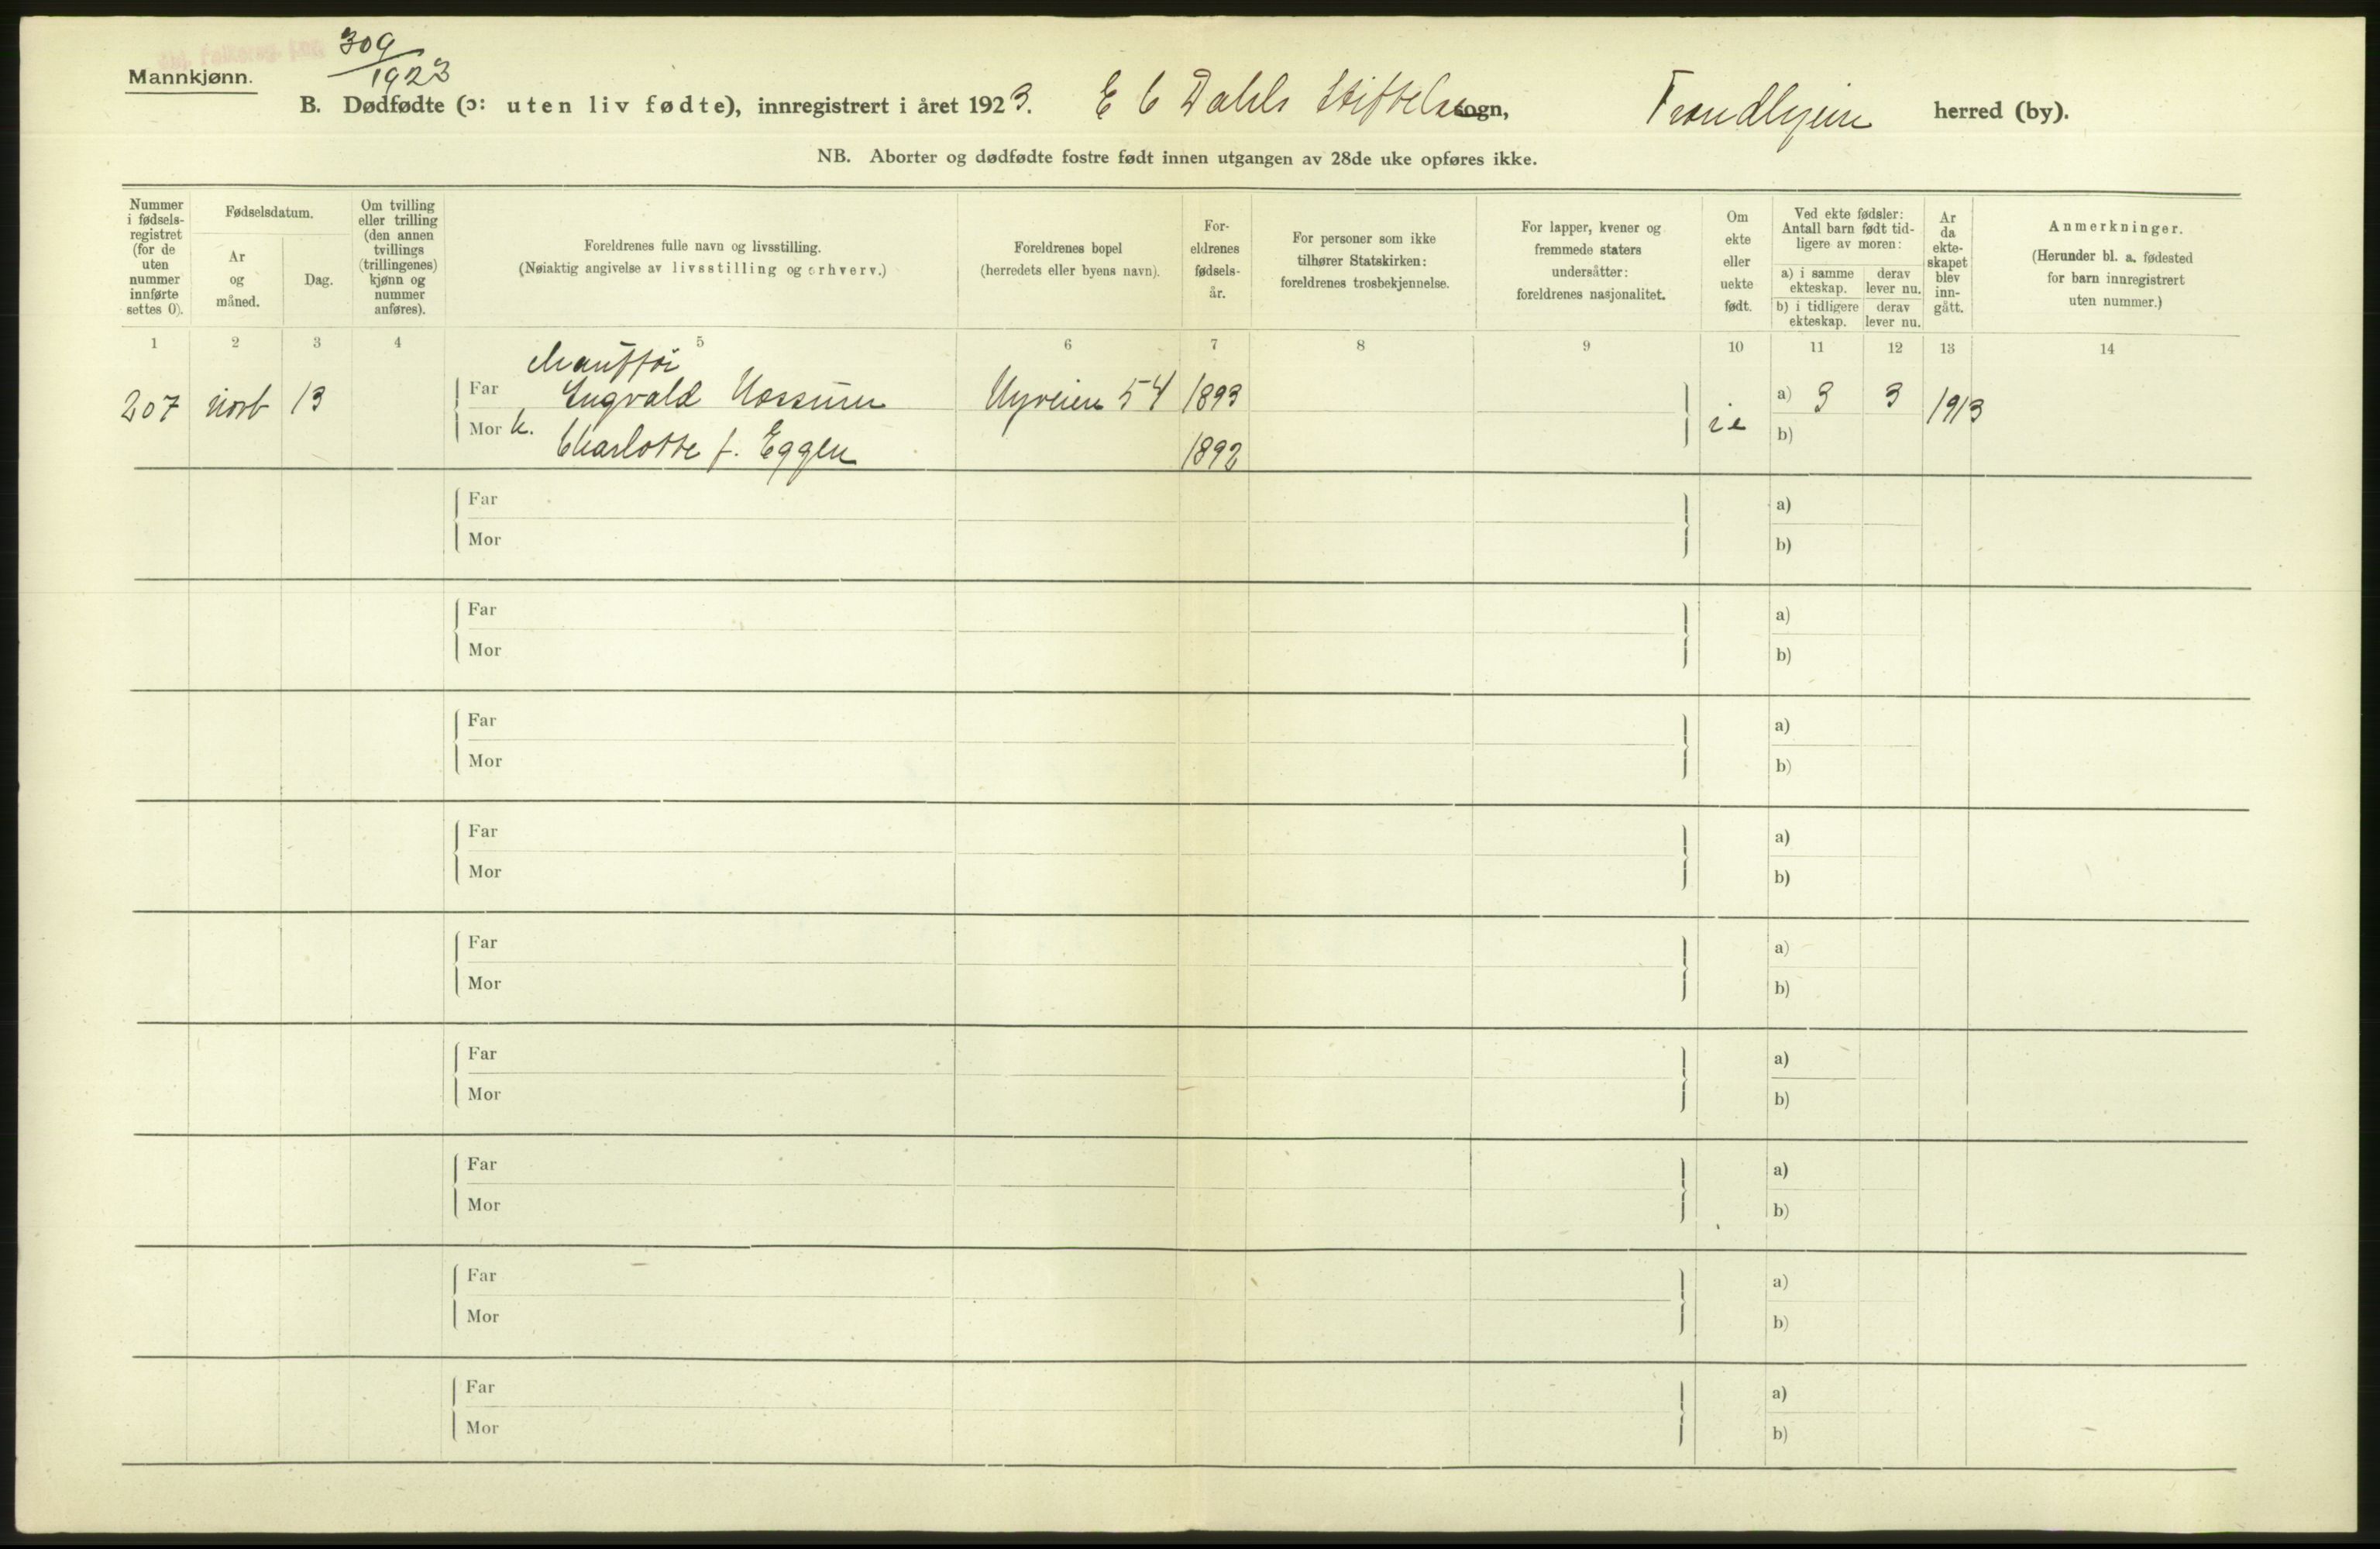 309
1923
Mannkjønn.
B. Dødfødte (ɔ: uten liv fødte), innregistrert i året 1923. E C Dahls Stiftelse sogn, Trondhjem herred (by).
NB. Aborter og dødfødte fostre født innen utgangen av 28de uke opføres ikke.
Nummer i fødsels-registret (for de uten nummer innførte settes 0).
Fødselsdatum.
Ar og måned.
Dag.
Om tvilling eller trilling (den annen tvillings (trillingenes) kjønn og nummer anføres).
Foreldrenes fulle navn og livsstilling.
(Nøiaktig angivelse av livsstilling og erhverv.)
Foreldrenes bopel
(herredets eller byens navn).
For-eldrenes fødsels-år.
For personer som ikke tilhører Statskirken: foreldrenes trosbekjennelse.
For lapper, kvener og fremmede staters undersåtter: foreldrenes nasjonalitet.
Om ekte eller uekte født.
Ved ekte fødsler: Antall barn født tid-ligere av moren:
a) i samme ekteskap.
derav lever nu.
b) i tidligere ekteskap.
derav lever nu.
Ar da ekte-skapet blev inn-gått.
Anmerkninger.
(Herunder bl. a. fødested for barn innregistrert uten nummer.)
1 2 3 4 5 6 7 8 9 10 11 12 13 14
207 13 Far Engvald Nyveien 54 1893 a) 3 3 1913
Mor h. Charlotte f. Eggen 1892 b)
Far a)
Mor b)
Far a)
Mor b)
Far a)
Mor b)
Far a)
Mor b)
Far a)
Mor b)
Far a)
Mor b)
Far a)
Mor b)
Far a)
Mor b)
Far a)
Mor b)